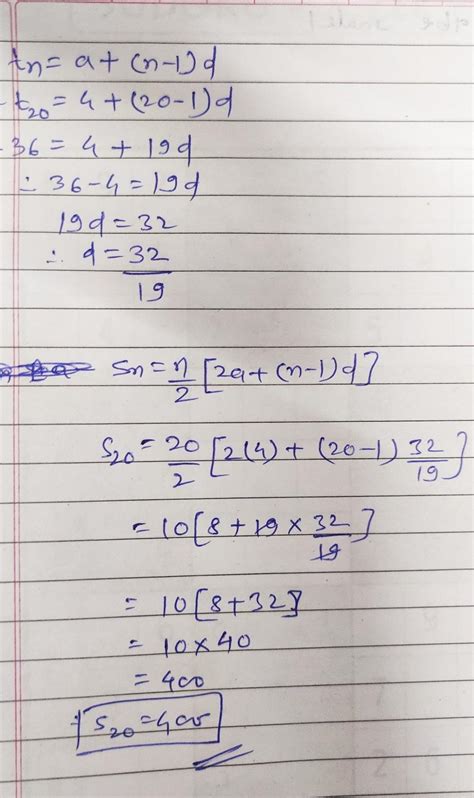 tn = a + (n-1)d
t20 = 4 + (20-1)d
36 = 4 + 19d
∴ 36-4 = 19d
19d = 32
∴ d = 32/19
Sn = n/2 [2a + (n-1)d]
S20 = 20/2 [2(4) + (20-1) 32/19]
= 10[8 + 19 × 32/19]
= 10[8+32]
= 10×40
= 400
∴ S20 = 400